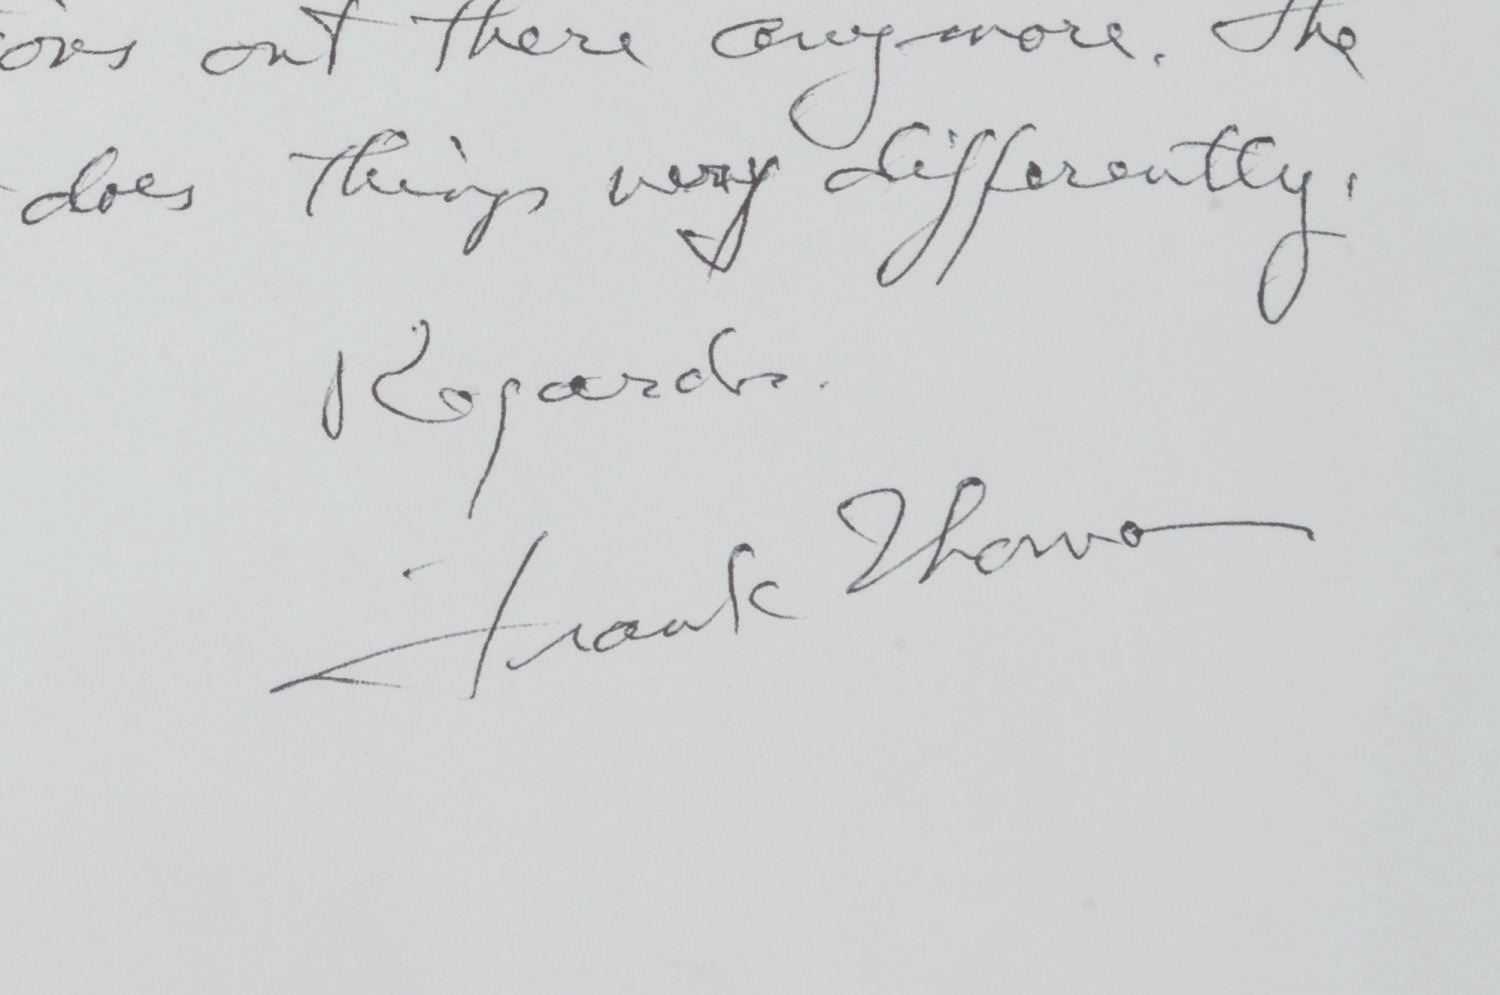 out there anymore. The
does things very differently.
Regards.
Frank Thomas